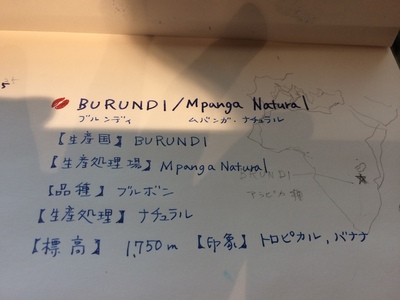 BURUNDI/Mpanga Natural
ブルンディ ムパンガ・ナチュラル
【生産国】 BURUNDI
【生産処理場】 Mpanga Natural
【品種】 ブルボン
【生産処理】 ナチュラル
【標高】 1,750m 【印象】 トロピカル, バナナ
BURUNDI